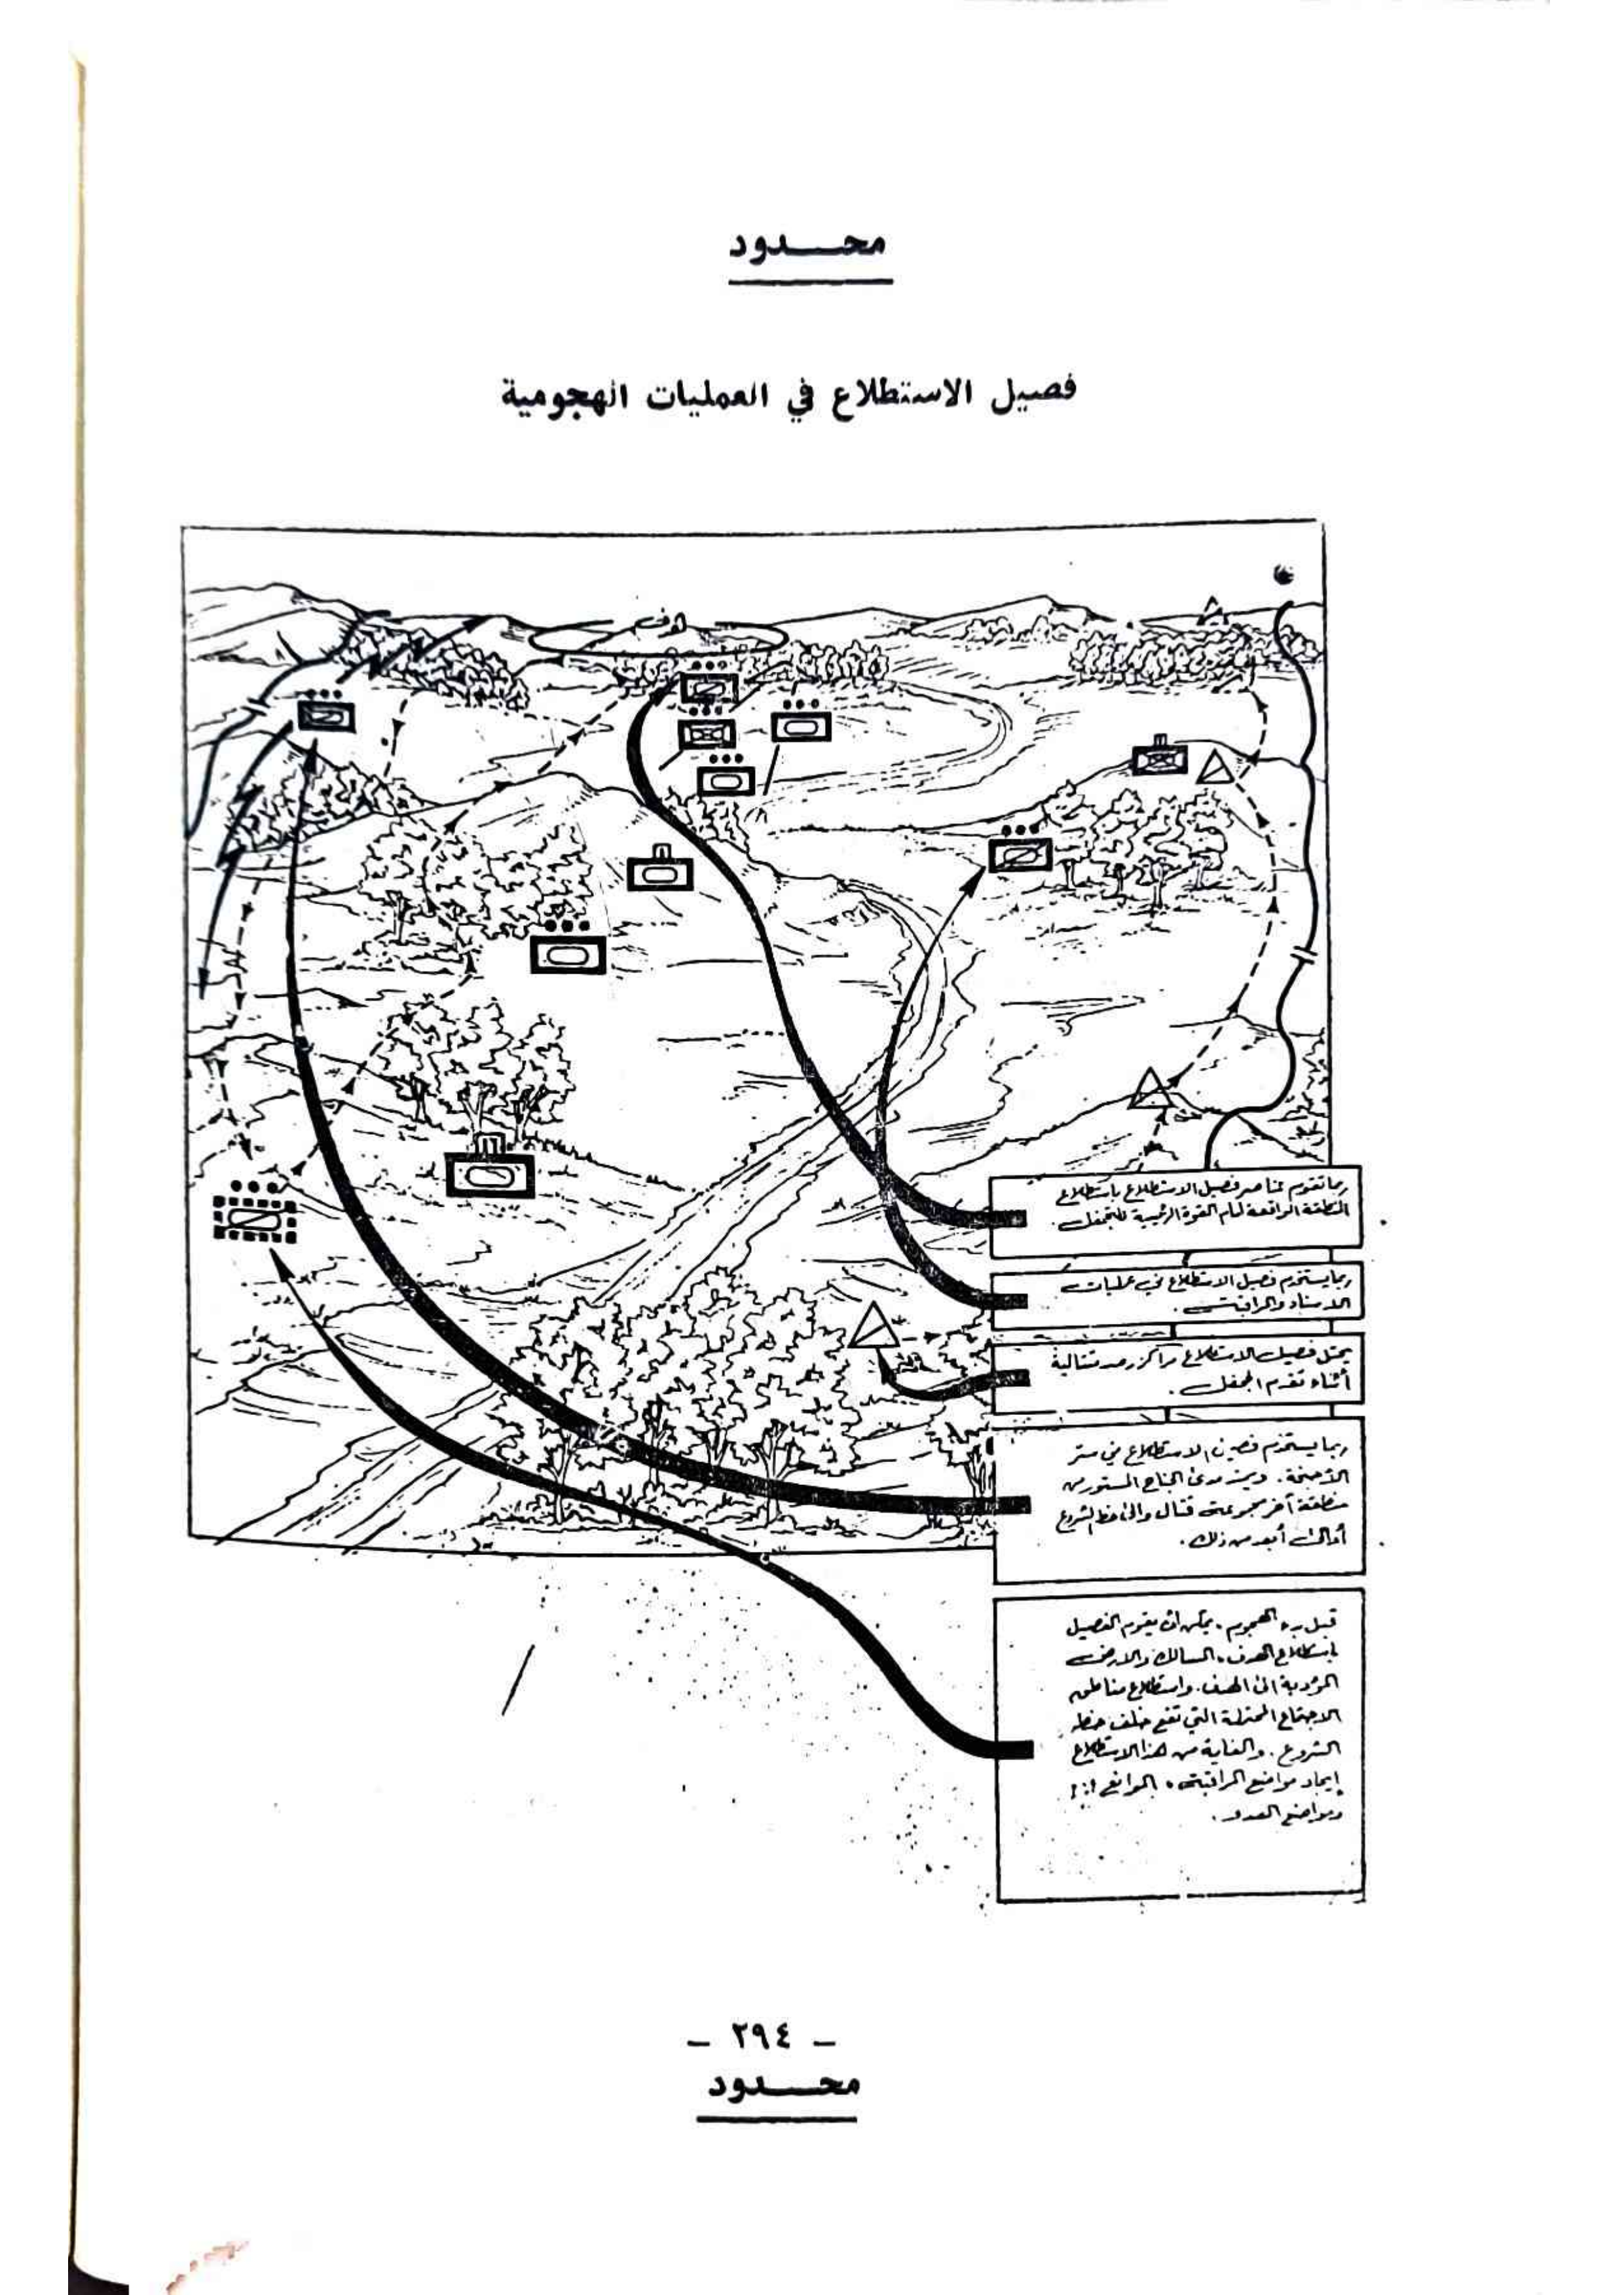 محـــدود
فصيل الاستطلاع في العمليات الهجومية
هدف
ربما تقوم عناصر فصيل الاستطلاع باستطلاع
المنطقة الواقعة امام القوة الرئيسية للجحفل.
ربما يستخدم فصيل الاستطلاع في عمليات
الاسناد والمراقبة.
يحتل فصيل الاستطلاع مراكز رصد متتالية
أثناء تقدم الجحفل.
ربما يستخدم فصيل الاستطلاع في ستر
الأجنحة. ويمتد مدى الجناح المستور من
منطقة آخر مجموعة قتال والى خط الشروع
أو الى أبعد من ذلك.
قبل بدء الهجوم، يمكن ان يقوم الفصيل
باستطلاع الهدف، المسالك والارض
المؤدية الى الهدف. واستطلاع مناطق
الاجتماع المحتملة التي تقع خلف خط
الشروع. والغاية من هذا الاستطلاع
إيجاد مواضع المراقبة، الموانع
ومواضع العدو.
– ٢٩٤ –
محـــدود